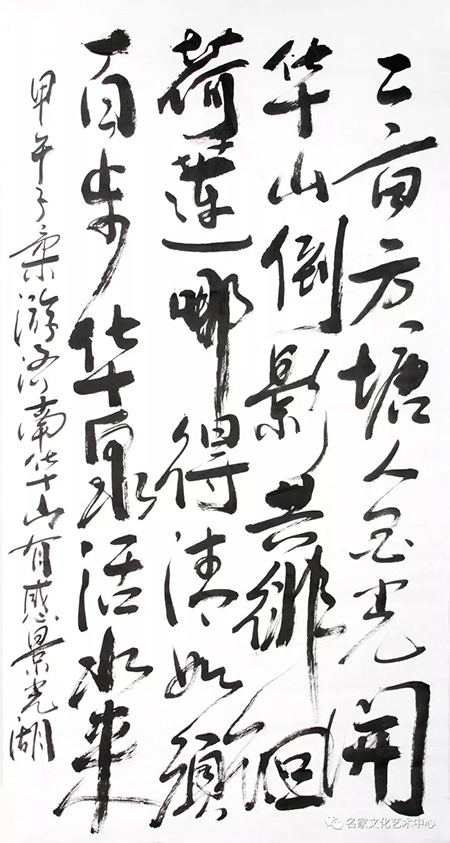 二亩方塘金光开
华山倒影共徘徊
荷莲哪得清如
百步华泉活水来
甲午子柔游济南华山有感景光湖
名家文化艺术中心